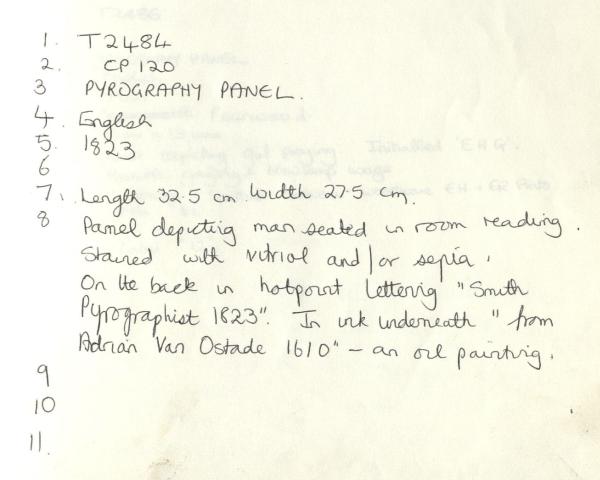 1. T2484
2. CP 120
3 PYROGRAPHY PANEL.
4. English
5. 1823
6
7. Length 32.5 cm Width 27.5 cm.
8 Panel depicting man seated in room reading.
Stained with vitriol and/or sepia.
On the back in hotpoint lettering "Smith
Pyrographist 1823". In ink underneath "from
Adrian Van Ostade 1610" – an oil painting.
9
10
11.